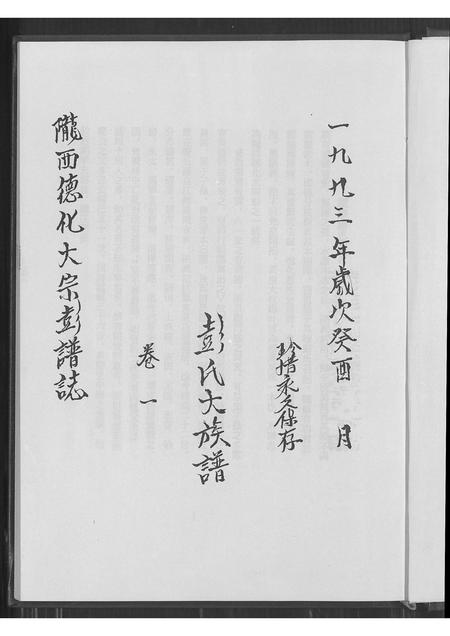 一九九三年歲次癸酉 月
珍惜永久保存
彭氏大族譜
卷一
隴西德化大宗彭譜誌